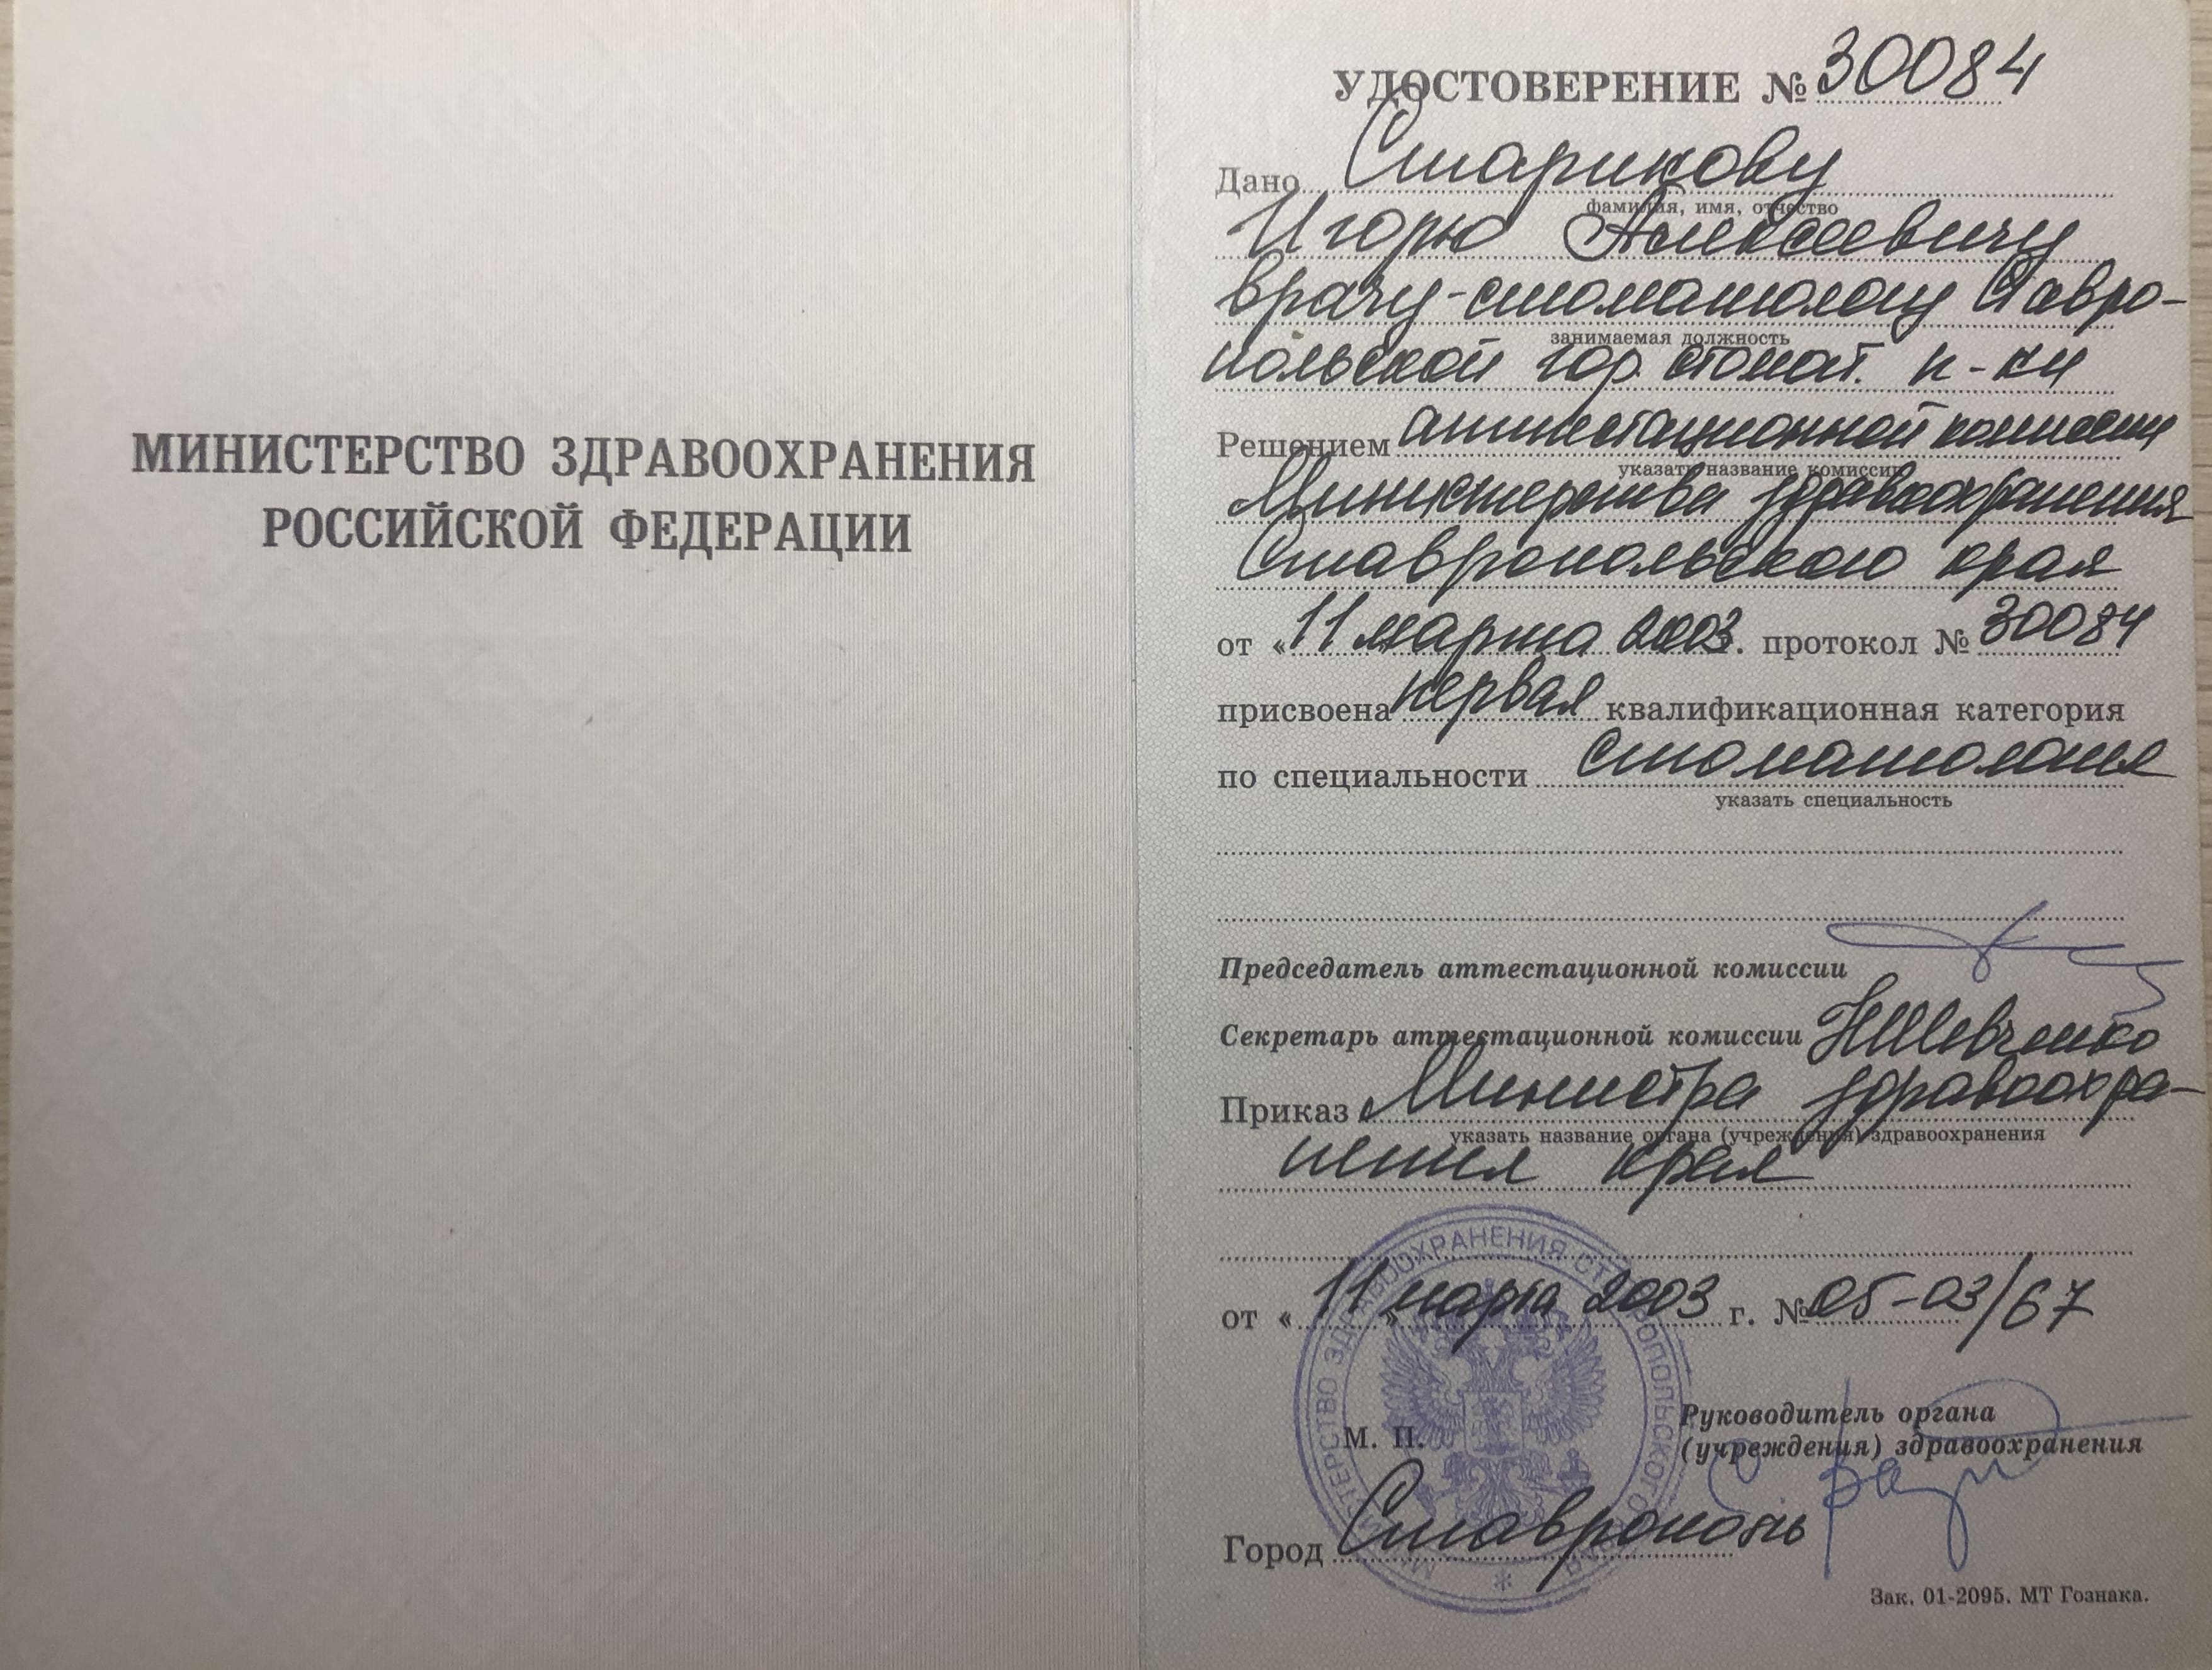 МИНИСТЕРСТВО ЗДРАВООХРАНЕНИЯ
РОССИЙСКОЙ ФЕДЕРАЦИИ
УДОСТОВЕРЕНИЕ № 30084
Дано Старикову
фамилия, имя, отчество
Игорю Алексеевичу
врачу-стоматологу Ставро-
занимаемая должность
польской гор. стомат. п-ки
Решением аттестационной комиссии
указать название комиссии
Министерства здравоохранения
Ставропольского края
от «11 марта 2003 г. протокол № 30084
присвоена первая квалификационная категория
по специальности стоматология
указать специальность
Председатель аттестационной комиссии
Секретарь аттестационной комиссии НШевченко
Приказ Министра здравоохра-
указать название органа (учреждения) здравоохранения
нения края
от «11» марта 2003 г. № 05-03/67
Руководитель органа
М. П.
(учреждения) здравоохранения
Город Ставрополь
МИНИСТЕРСТВО ЗДРАВООХРАНЕНИЯ СТАВРОПОЛЬСКОГО КРАЯ
Зак. 01-2095. МТ Гознака.